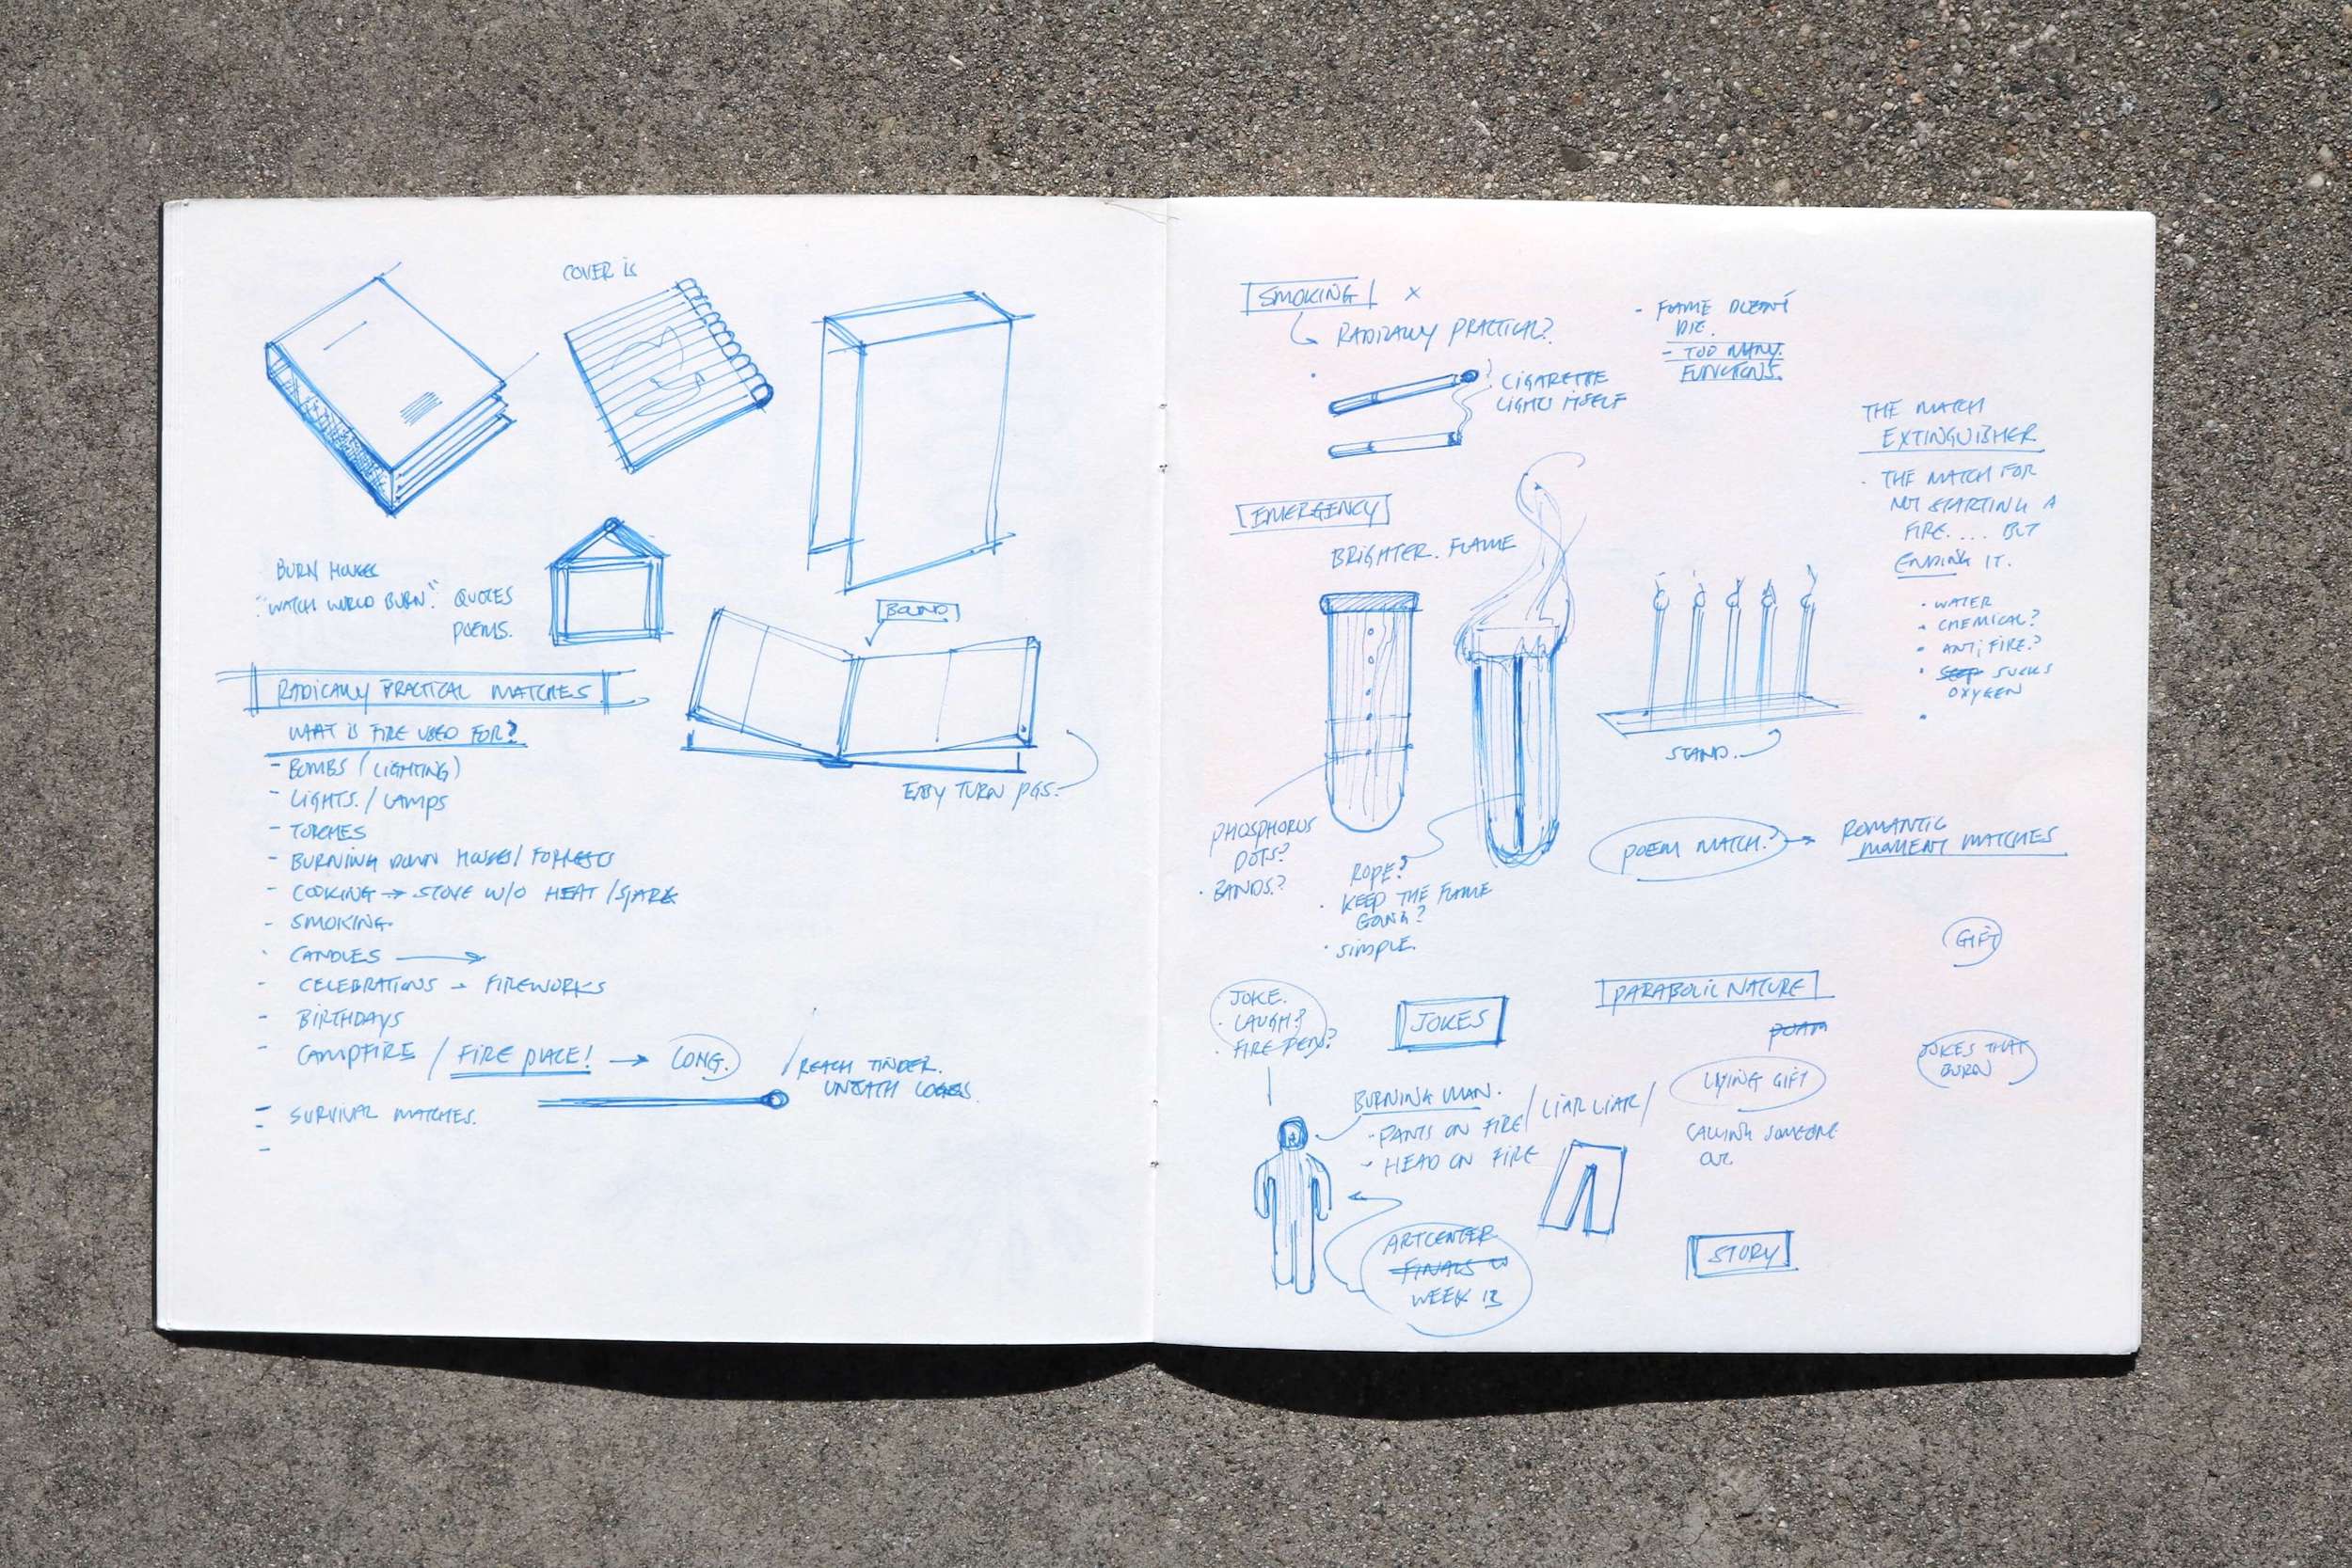 COVER IS
BURN HOUSES
"WATCH WORLD BURN." QUOTES
POEMS.
BOUND
EASY TURN PGS.
RADICALLY PRACTICAL MATCHES
WHAT IS FIRE USED FOR?
- BOMBS (LIGHTING)
- LIGHTS. / LAMPS
- TORCHES
- BURNING DOWN HOUSES / FORRESTS
- COOKING → STOVE W/O HEAT / SPARK
- SMOKING.
- CANDLES →
- CELEBRATIONS - FIREWORKS
- BIRTHDAYS
- CAMPFIRE / FIRE PLACE! → LONG.
/ REACH TINDER.
UNEATH LOGS.
- SURVIVAL MATCHES.
SMOKING X
RADICALLY PRACTICAL?
CIGARETTE
LIGHTS ITSELF
- FLAME DOESN'T
DIE.
- TOO MANY.
FUNCTIONS.
THE MATCH
EXTINGUISHER
· THE MATCH FOR
NOT STARTING A
FIRE.... BUT
ENDING IT.
· WATER
· CHEMICAL?
· ANTI FIRE?
· SUCKS
OXYGEN
EMERGENCY
BRIGHTER. FLAME
STAND.
PHOSPHORUS
DOTS?
· BANDS.?
ROPE?
· KEEP THE FLAME
GOING?
· SIMPLE.
POEM MATCH? → ROMANTIC
MOMENT MATCHES
GIFT
JOKE.
· LAUGH?
· FIRE PEN?
JOKES
PARABOLIC NATURE
POEM
LYING GIFT
CALLING SOMEONE
OUT.
JOKES THAT
BURN
BURNING MAN.
- PANTS ON FIRE / LIAR LIAR /
- HEAD ON FIRE
ARTCENTER
FINALS
WEEK 13
STORY